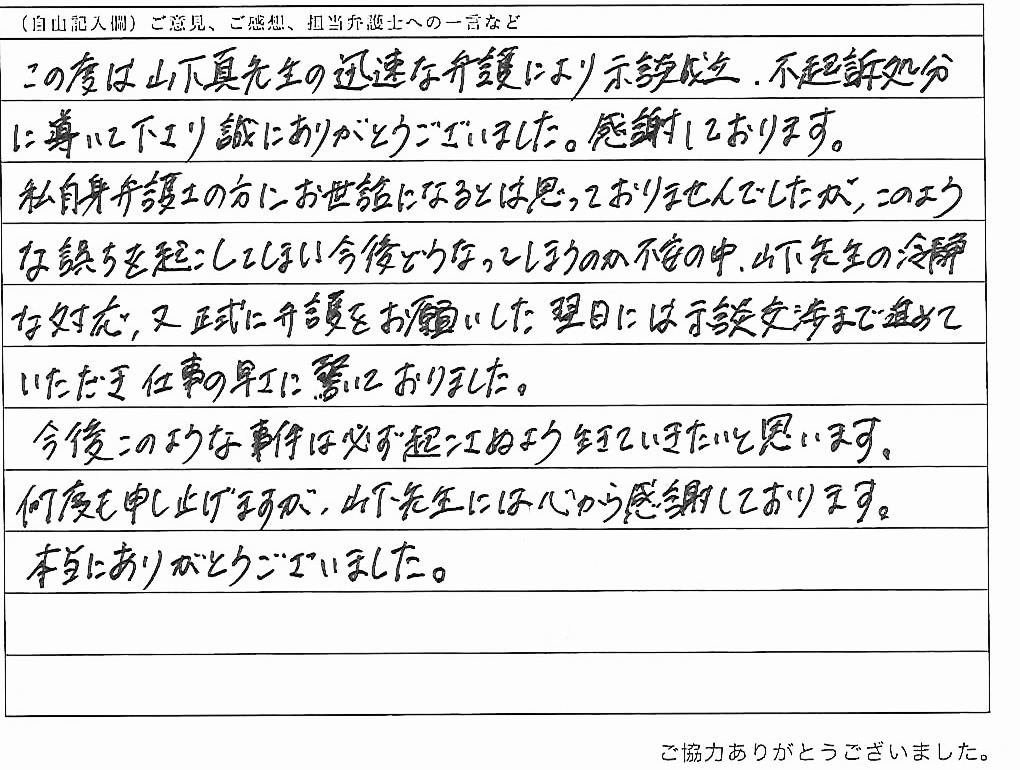 （自由記入欄）ご意見、ご感想、担当弁護士への一言など
この度は山下真先生の迅速な弁護により示談成立、不起訴処分
に導いて下さり誠にありがとうございました。感謝しております。
私自身弁護士の方にお世話になるとは思っておりませんでしたが、このよう
な誤ちを起こしてしまい今後どうなってしまうのか不安の中、山下先生の冷静
な対応、又正式に弁護をお願いした翌日には示談交渉まで進めて
いただき仕事の早さに驚いておりました。
今後このような事件は必ず起こさぬよう生きていきたいと思います。
何度も申し上げますが、山下先生には心から感謝しております。
本当にありがとうございました。
ご協力ありがとうございました。